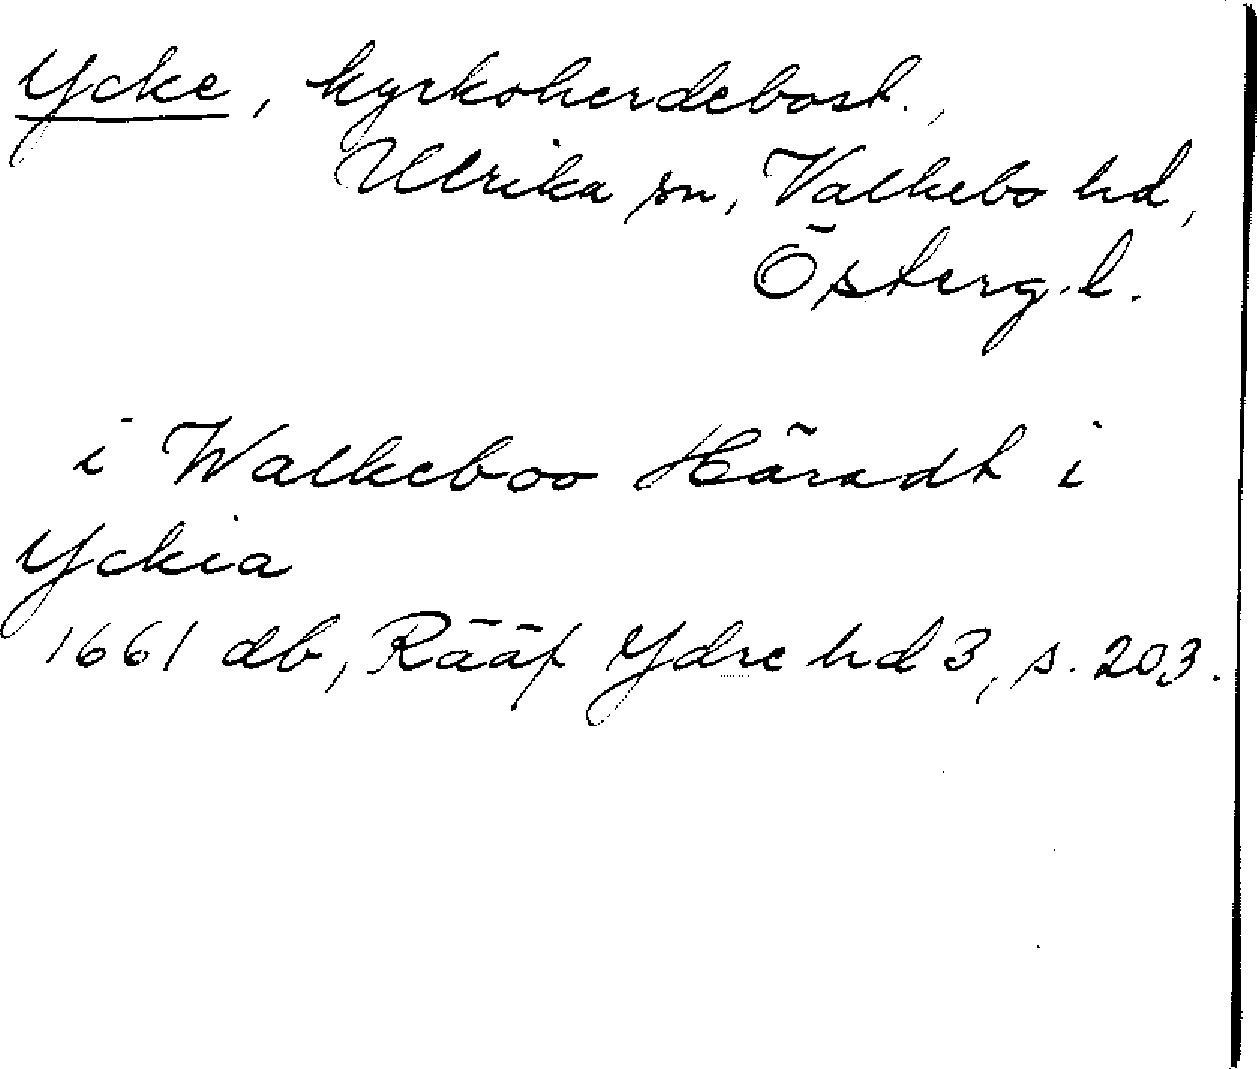 Ycke, kyrkoherdebost.,
Ulrika sn, Valkebo hd,
Österg. l.
i Walkeboo Häradt i
Yckia
1661 db, Rääf Ydre hd 3, s. 203.